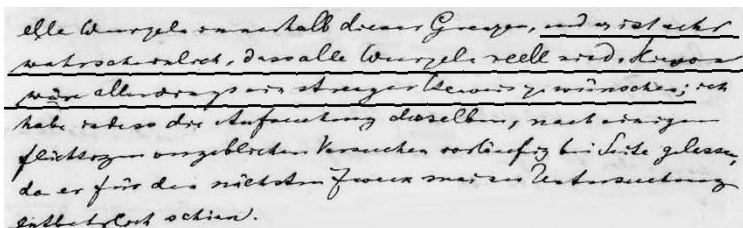 elle Wurzeln innerhalb dieser Grenzen, und es ist sehr
wahrscheinlich, dass alle Wurzeln reell sind. Hiervon
wäre allerdings ein strenger Beweis zu wünschen; ich
habe indess die Aufsuchung desselben, nach einigen
flüchtigen vergeblichen Versuchen vorläufig bei Seite gelassen,
da er für den nächsten Zweck meiner Untersuchung
entbehrlich schien.